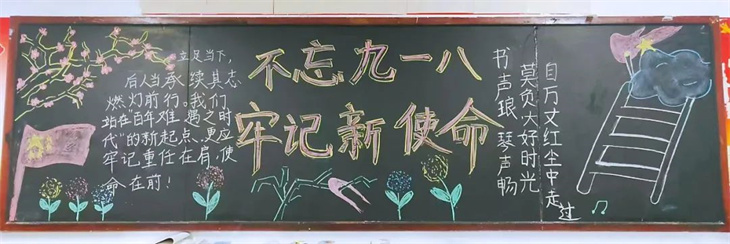 立足当下,
后人当承续其志
燃灯前行。我们
站在"百年难遇之时
代"的新起点,更应
牢记重任在肩,使
命在前!
不忘九一八
牢记新使命
书声琅琴声畅
莫负大好时光
自万丈红尘中走过